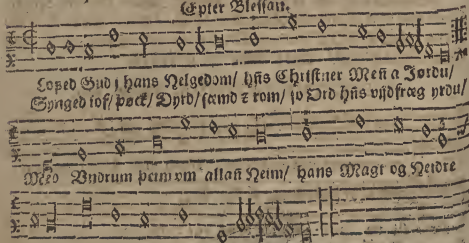 Epter Blessan.
Lofed Gud j hans Helgedom/ hñs Christner Meñ a Jordu/
Synged lof/ þack/ Dyrd/ sæmd z rom/ so Ord hñs vijdfræg yrdu/
Med Vndrum þeim vm allañ Heim/ hans Magt og Heidre